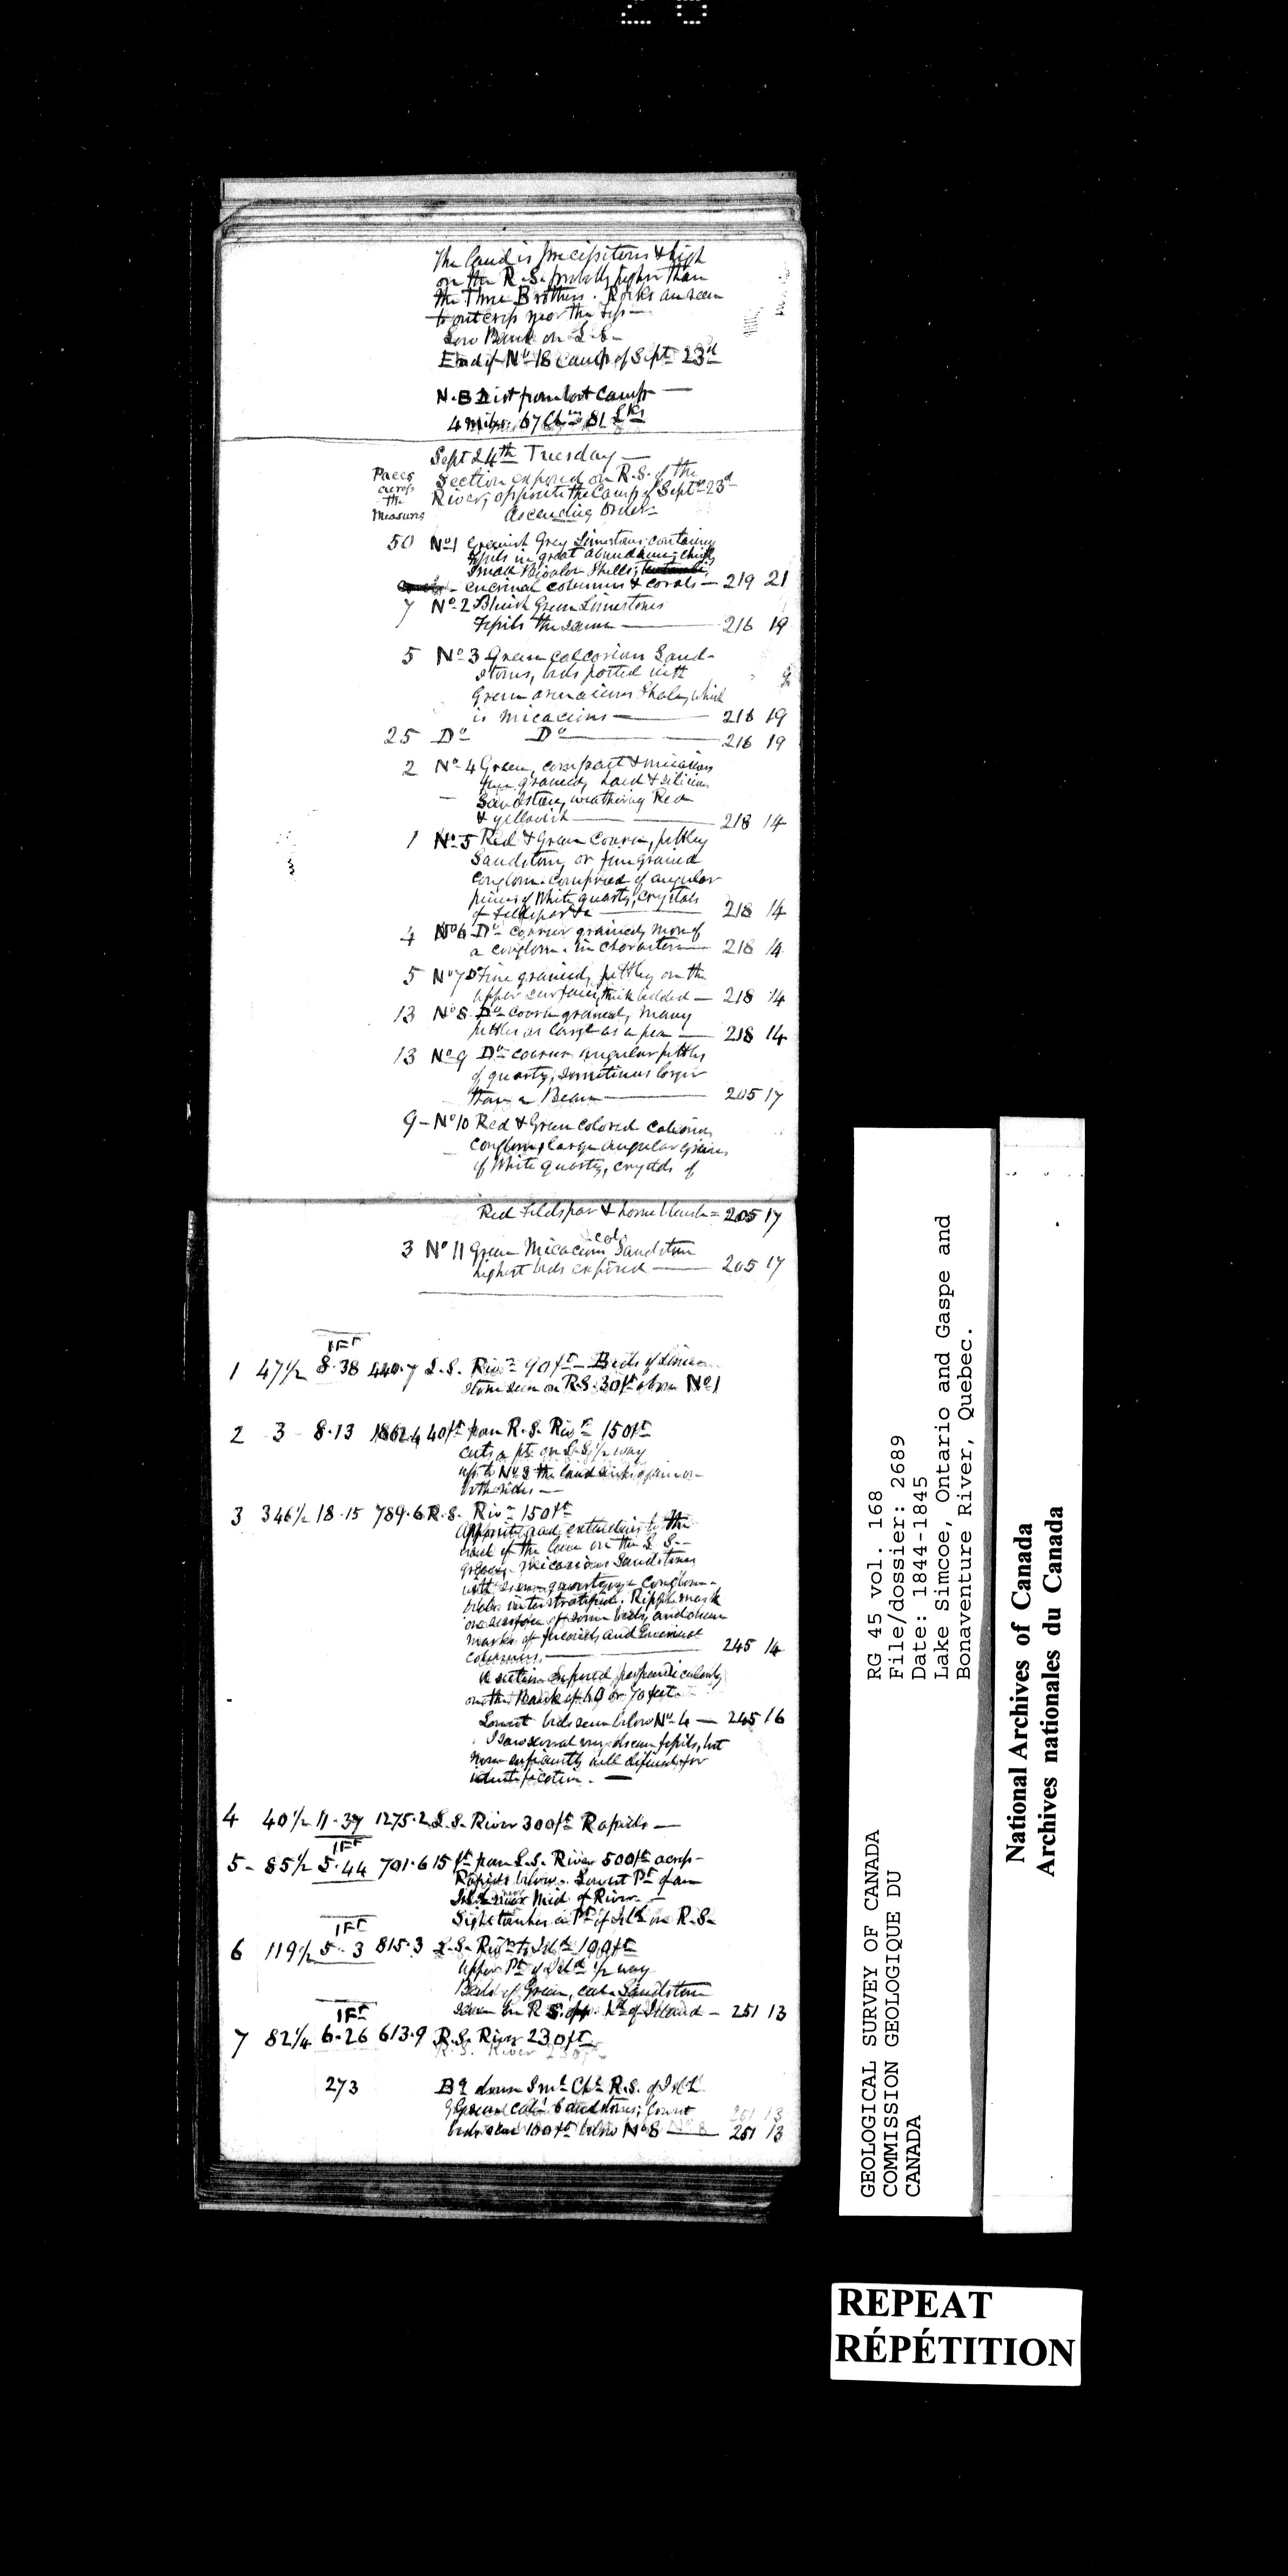 The land is precipitous & high
on the R.S. probably higher than
the Three Brothers. Rocks are seen
to outcrop near the top—
Low Bank on L.S.
End of No 18 Camp of Sept 23d
N.B Dist from last Camp—
4 miles 67 Chns 81 Lks
Sept 24th Tuesday—
Paces across the Measures
Section exposed on R.S. of the
River, opposite the Camp of Septr 23d
ascending order
50 No 1 Greenish Grey Limestones containing
fossils in great abundance, chiefly
small Bivalve Shells,
encrinal columns & corals — 219 21
7 No 2 Bluish Green Limestones
Fossils the same — 216 19
5 No 3 Green calcareous Sand-
stones, beds parted with
Green arenaceous Shale, which
is micaceous — 216 19
25 Do Do — 216 19
2 No 4 Green, compact & micaceous
fine grained, hard & silicious
Sandstone, weathering Red
& yellowish — 218 14
1 No 5 Red & Green Coarse, pebbley
Sandstone, or fine grained
conglom. composed of angular
pieces of White quartz, crystals
of feldspar &c — 218 14
4 No 6 Do coarser grained, more of
a conglom. in character — 218 14
5 No 7 Do Fine grained, pebbley on the
upper surface, thick bedded — 218 14
13 No 8 Do coarse grained, many
pebbles as large as a pea — 218 14
13 No 9 Do coarser angular pebbles
of quartz, sometimes larger
than a Bean — 205 17
9 – No 10 Red & Green colored calcareous
conglom, large angular grains
of White quartz, crystals of
Red Feldspar & hornblende = 205 17
3 No 11 Green Micaceous cal. Sandstone
highest beds exposed — 205 17
1Ft
1 47½ 8.38 440.7 L.S. Rivr 90ft – Beds of Lime-
stone seen on R.S. 30ft above No 1
2 3 – 8.13 1862.4 40ft from R.S. Rivr 150ft
cuts a pt. on L.S. ½ way
up to No 3 the land sinks again on
both sides —
3 346½ 18.15 789.6 R.S. Rivr 150ft
Opposite and extending to the
end of the line on the L.S.—
micaceous Sandstones
with some conglom.
beds interstratified. Ripple mark
on surface of some beds, and obscure
marks of fucoids and Encrinal
columns. — 245 14
A section exposed perpendicularly
on the Bank of 60 or 70 feet
Lowest beds seen below No 4 — 245 16
I saw several very obscure fossils, but
none sufficiently well defined for
identification. —
4 40½ 11.37 1275.2 L.S. River 300ft Rapids —
1Ft
5 – 85½ 5.44 701.6 15ft from L.S. River 500ft across—
Rapids below. Lowest Pt of an
Isld near Mid. of River. —
Sight touches a Pt of Isld on R.S.
1Ft
6 119½ 5.3 815.3 L.S. Rivr to Isld 100ft
Upper Pt of Isld ½ way
Beds of Green, calc. Sandstone
seen on R.S. of Island — 251 13
1Ft
7 82¼ 6.26 613.9 R.S. River 230ft
273 Bg down Sml Chl R.S. of Isld
Green cal. Sandstones, lowest
beds seen 100ft below No 8 — 251 13
GEOLOGICAL SURVEY OF CANADA
COMMISSION GEOLOGIQUE DU
CANADA
RG 45 vol. 168
File/dossier: 2689
Date: 1844-1845
Lake Simcoe, Ontario and Gaspe and
Bonaventure River, Quebec.
National Archives of Canada
Archives nationales du Canada
REPEAT
RÉPÉTITION